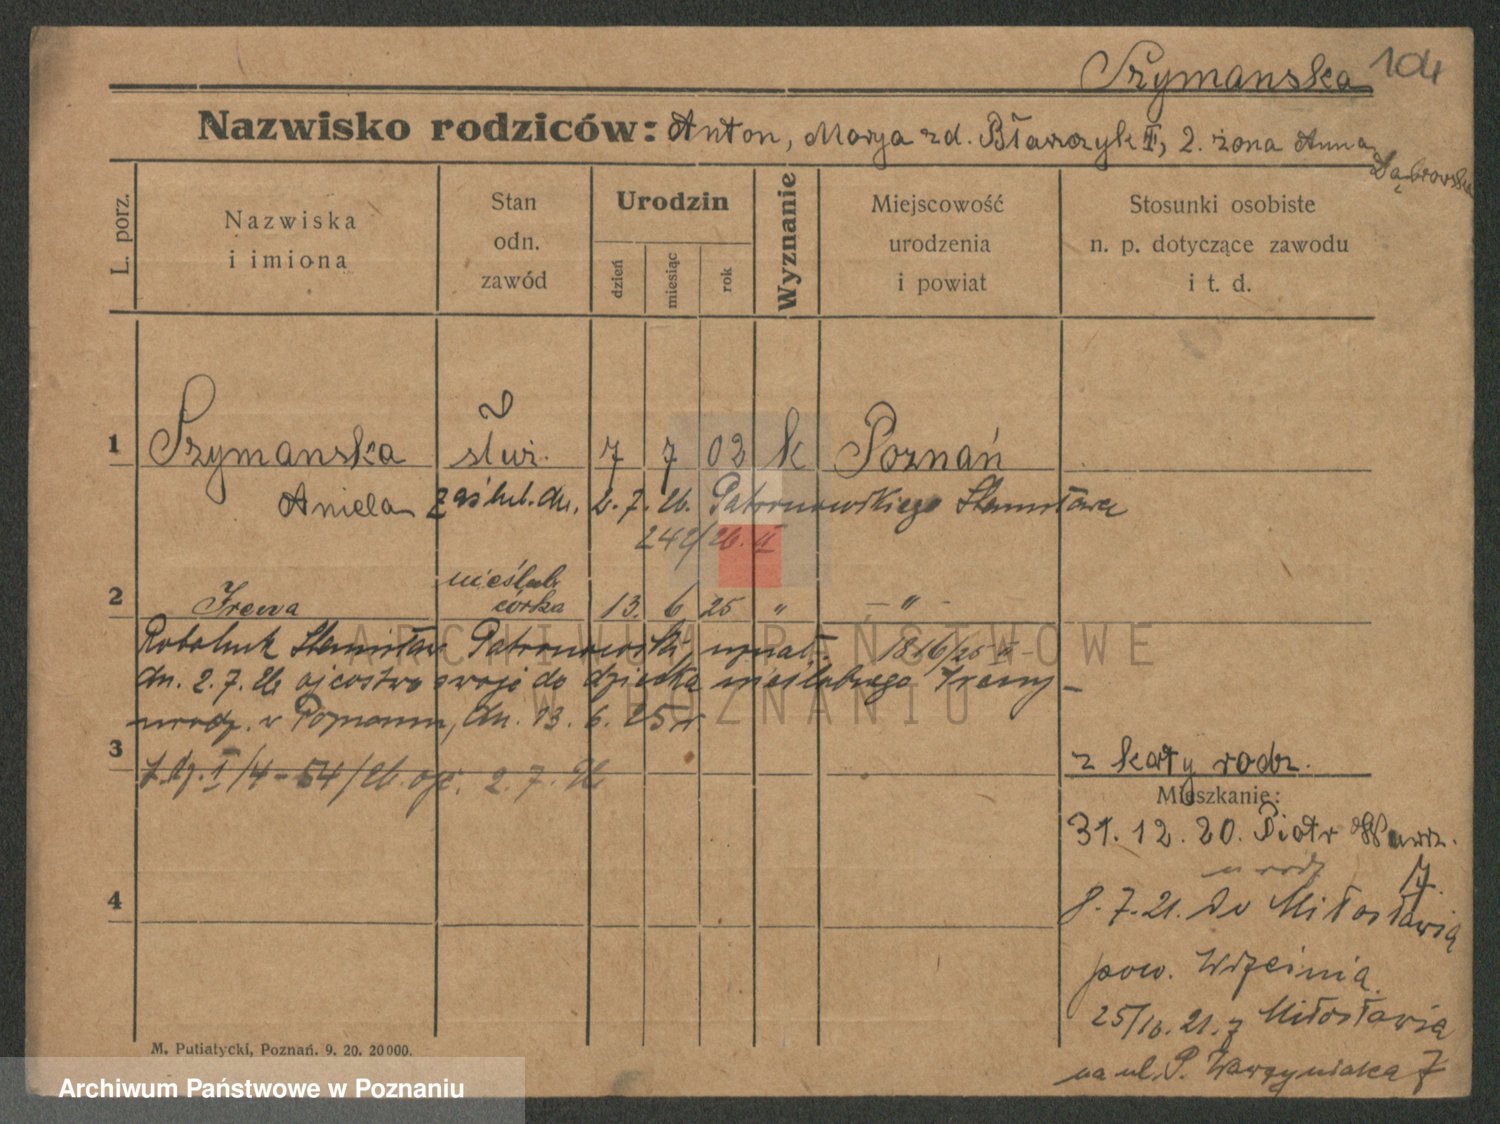 Szymanska 104
Nazwisko rodziców: Anton, Marya zd. Błaszczyk I, 2. żona Anna
Dąbrowska
L. porz.
Nazwiska
i imiona
Stan
odn.
zawód
Urodzin
dzień
miesiąc
rok
Wyznanie
Miejscowość
urodzenia
i powiat
Stosunki osobiste
n. p. dotyczące zawodu
i t. d.
1 Szymanska służ. 7 7 02 k Poznań
Aniela zaślub. dn. 2.7.26. Patronowskiego Stanisława
242/26. II
nieślub.
2 Irena córka 13. 6 25 " — " —
Robotnik Stanisław Patronowski uznał. 1816/25 II
dn. 2.7.26 ojcostwo swoje do dziecka nieślubnego Ireny —
urodz. w Poznaniu, dn. 13. 6. 25 r.
3
I/4-54/26. 2. 7. 26
z karty rodz.
Mieszkanie:
31.12.20. Piotr Wawrz.
u rodz 7.
8.7.21. do Miłosławia
pow. Września.
25/10.21. z Miłosławia
na ul. P. Wawrzyniaka 7
4
M. Putiatycki, Poznań. 9. 20. 20000.
ARCHIWUM PAŃSTWOWE
W POZNANIU
Archiwum Państwowe w Poznaniu